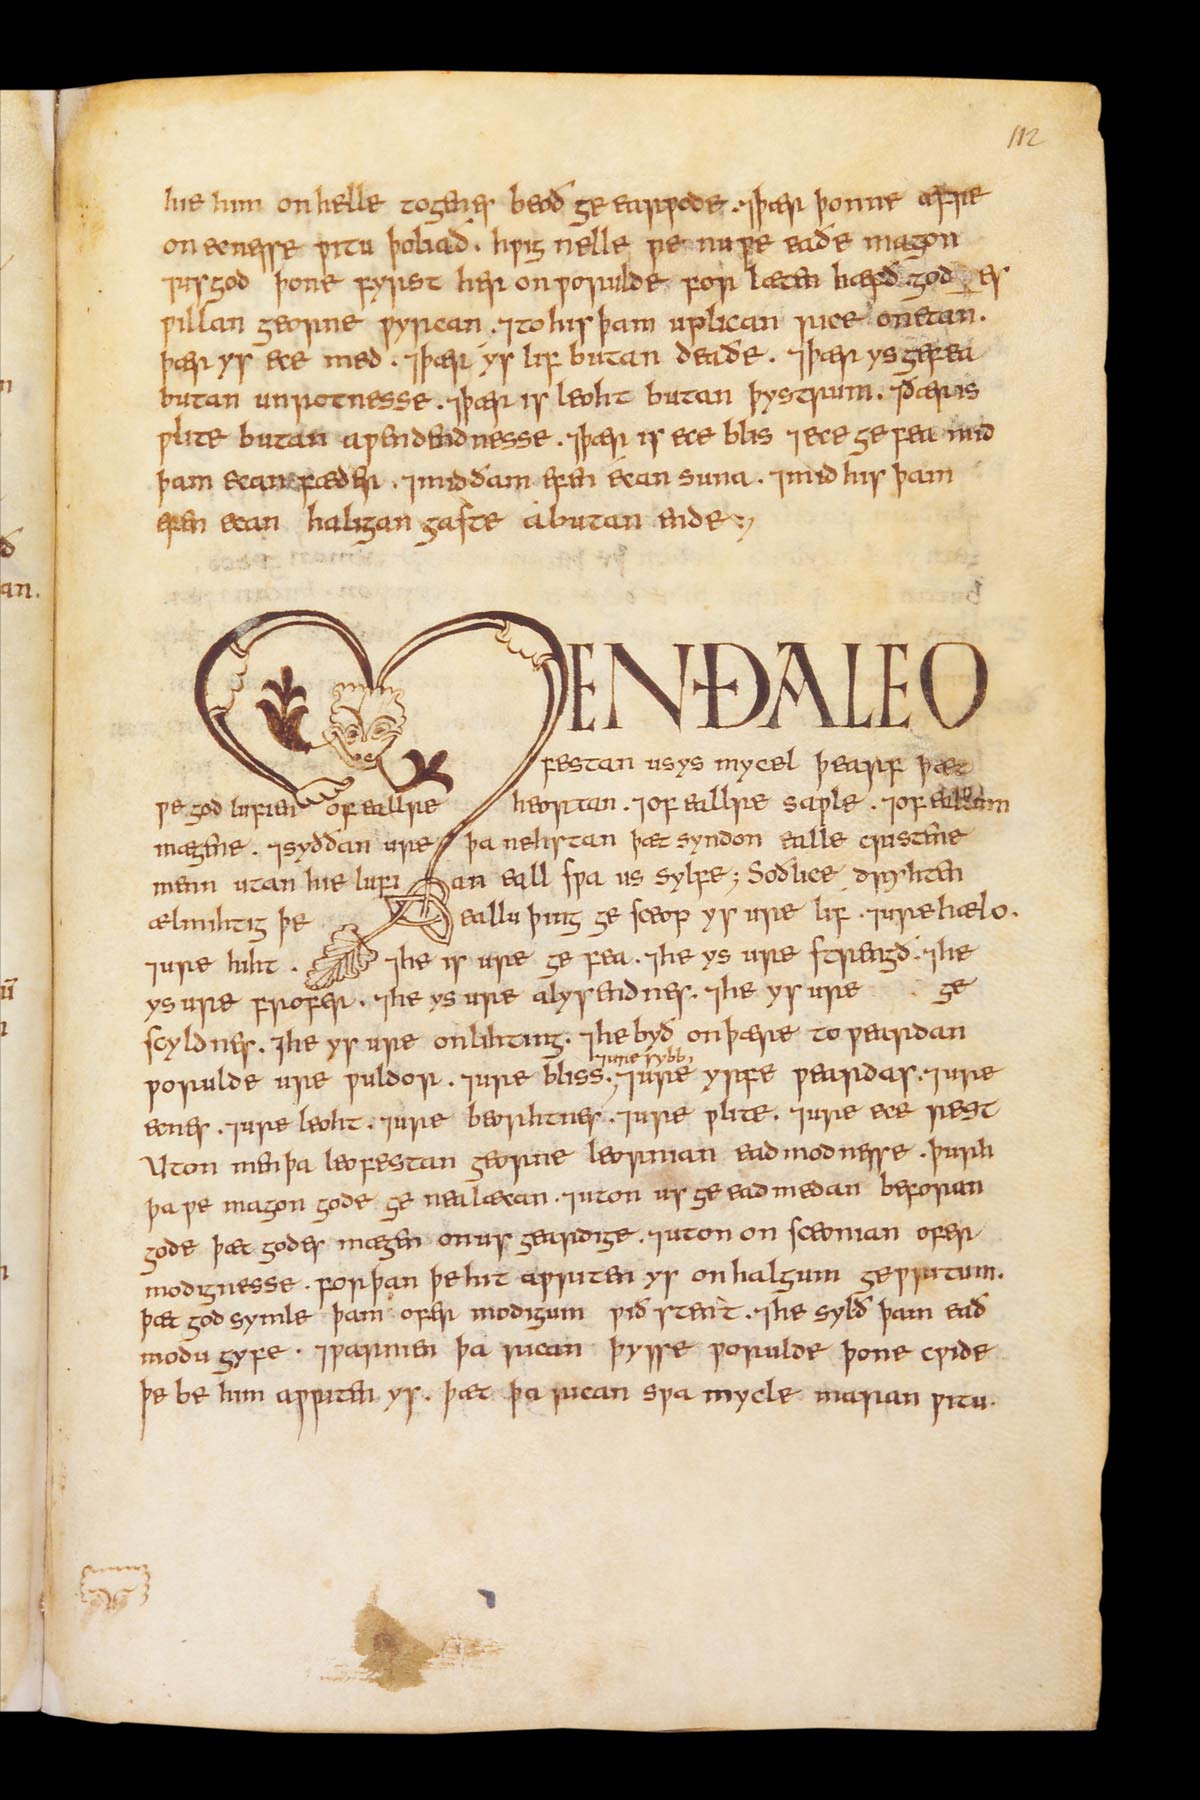 112
hie him on helle togenes beoð ge earƿode · ⁊þær þonne æfre
on ecnesse ƿitu þoliað . hƿig nelle ƿe nu ƿe eaðe magon
⁊us god þone fyrst her on ƿorulde for læten hæfð . god es
ƿillan georne ƿyrcan . ⁊to his þam uplican rice onetan .
þær ys ece med . ⁊þær ys lif butan deaðe . ⁊þær ys gefea
butan unrotnesse . ⁊þær is leoht butan þystrum . ⁊ðær is
ƿlite butan aƿendendnesse . ⁊þær is ece blis ⁊ece ge fea mid
þam ecan fæder . ⁊mid ðam efen ecan suna . ⁊mid his þam
efen ecan haligan gaste á butan ende :,
MEN ÐA LEO
festan us ys mycel þearf þæt
ƿe god lufien of eallre heortan . ⁊of eallre saƿle . ⁊of eallum
mægene . ⁊syððan ure þa nehstan þæt syndon ealle cristene
menn utan hie lufi an eall sƿa us sylfe ; Soðlice dryhten
ælmihtig þe eallu þing ge sceop ys ure lif . ⁊ure hælo .
⁊ure hiht . ⁊he is ure ge fea . ⁊he ys ure strengð . ⁊he
ys ure frofer . ⁊he ys ure alysendnes . ⁊he ys ure ge
scyldnes . ⁊he ys ure onlihting . ⁊he byð on þære to ƿeardan
⁊ure sybb,
ƿorulde ure ƿuldor . ⁊ure bliss . ⁊ure yrfe ƿeardas . ⁊ure
ecnes . ⁊ure leoht . ⁊ure beorhtnes . ⁊ure ƿlite . ⁊ure ece rest
Uton men þa leofestan georne leornian eadmodnesse . þurh
þa ƿe magon gode ge nealæcan . ⁊uton us ge eadmedan beforan
gode þæt godes mægen on us geardige . ⁊uton on scewnian ofer
modignesse . for þan þe hit aƿriten ys on halgum geƿritum .
þæt god symle þam ofer modigum ƿið stent . ⁊he sylð þam ead
modu gyfe . ⁊ƿarnien þa rican þysse ƿorulde þone cƿide
þe be him aƿriten ys . þæt þa rican sƿa mycle maran ƿitu .